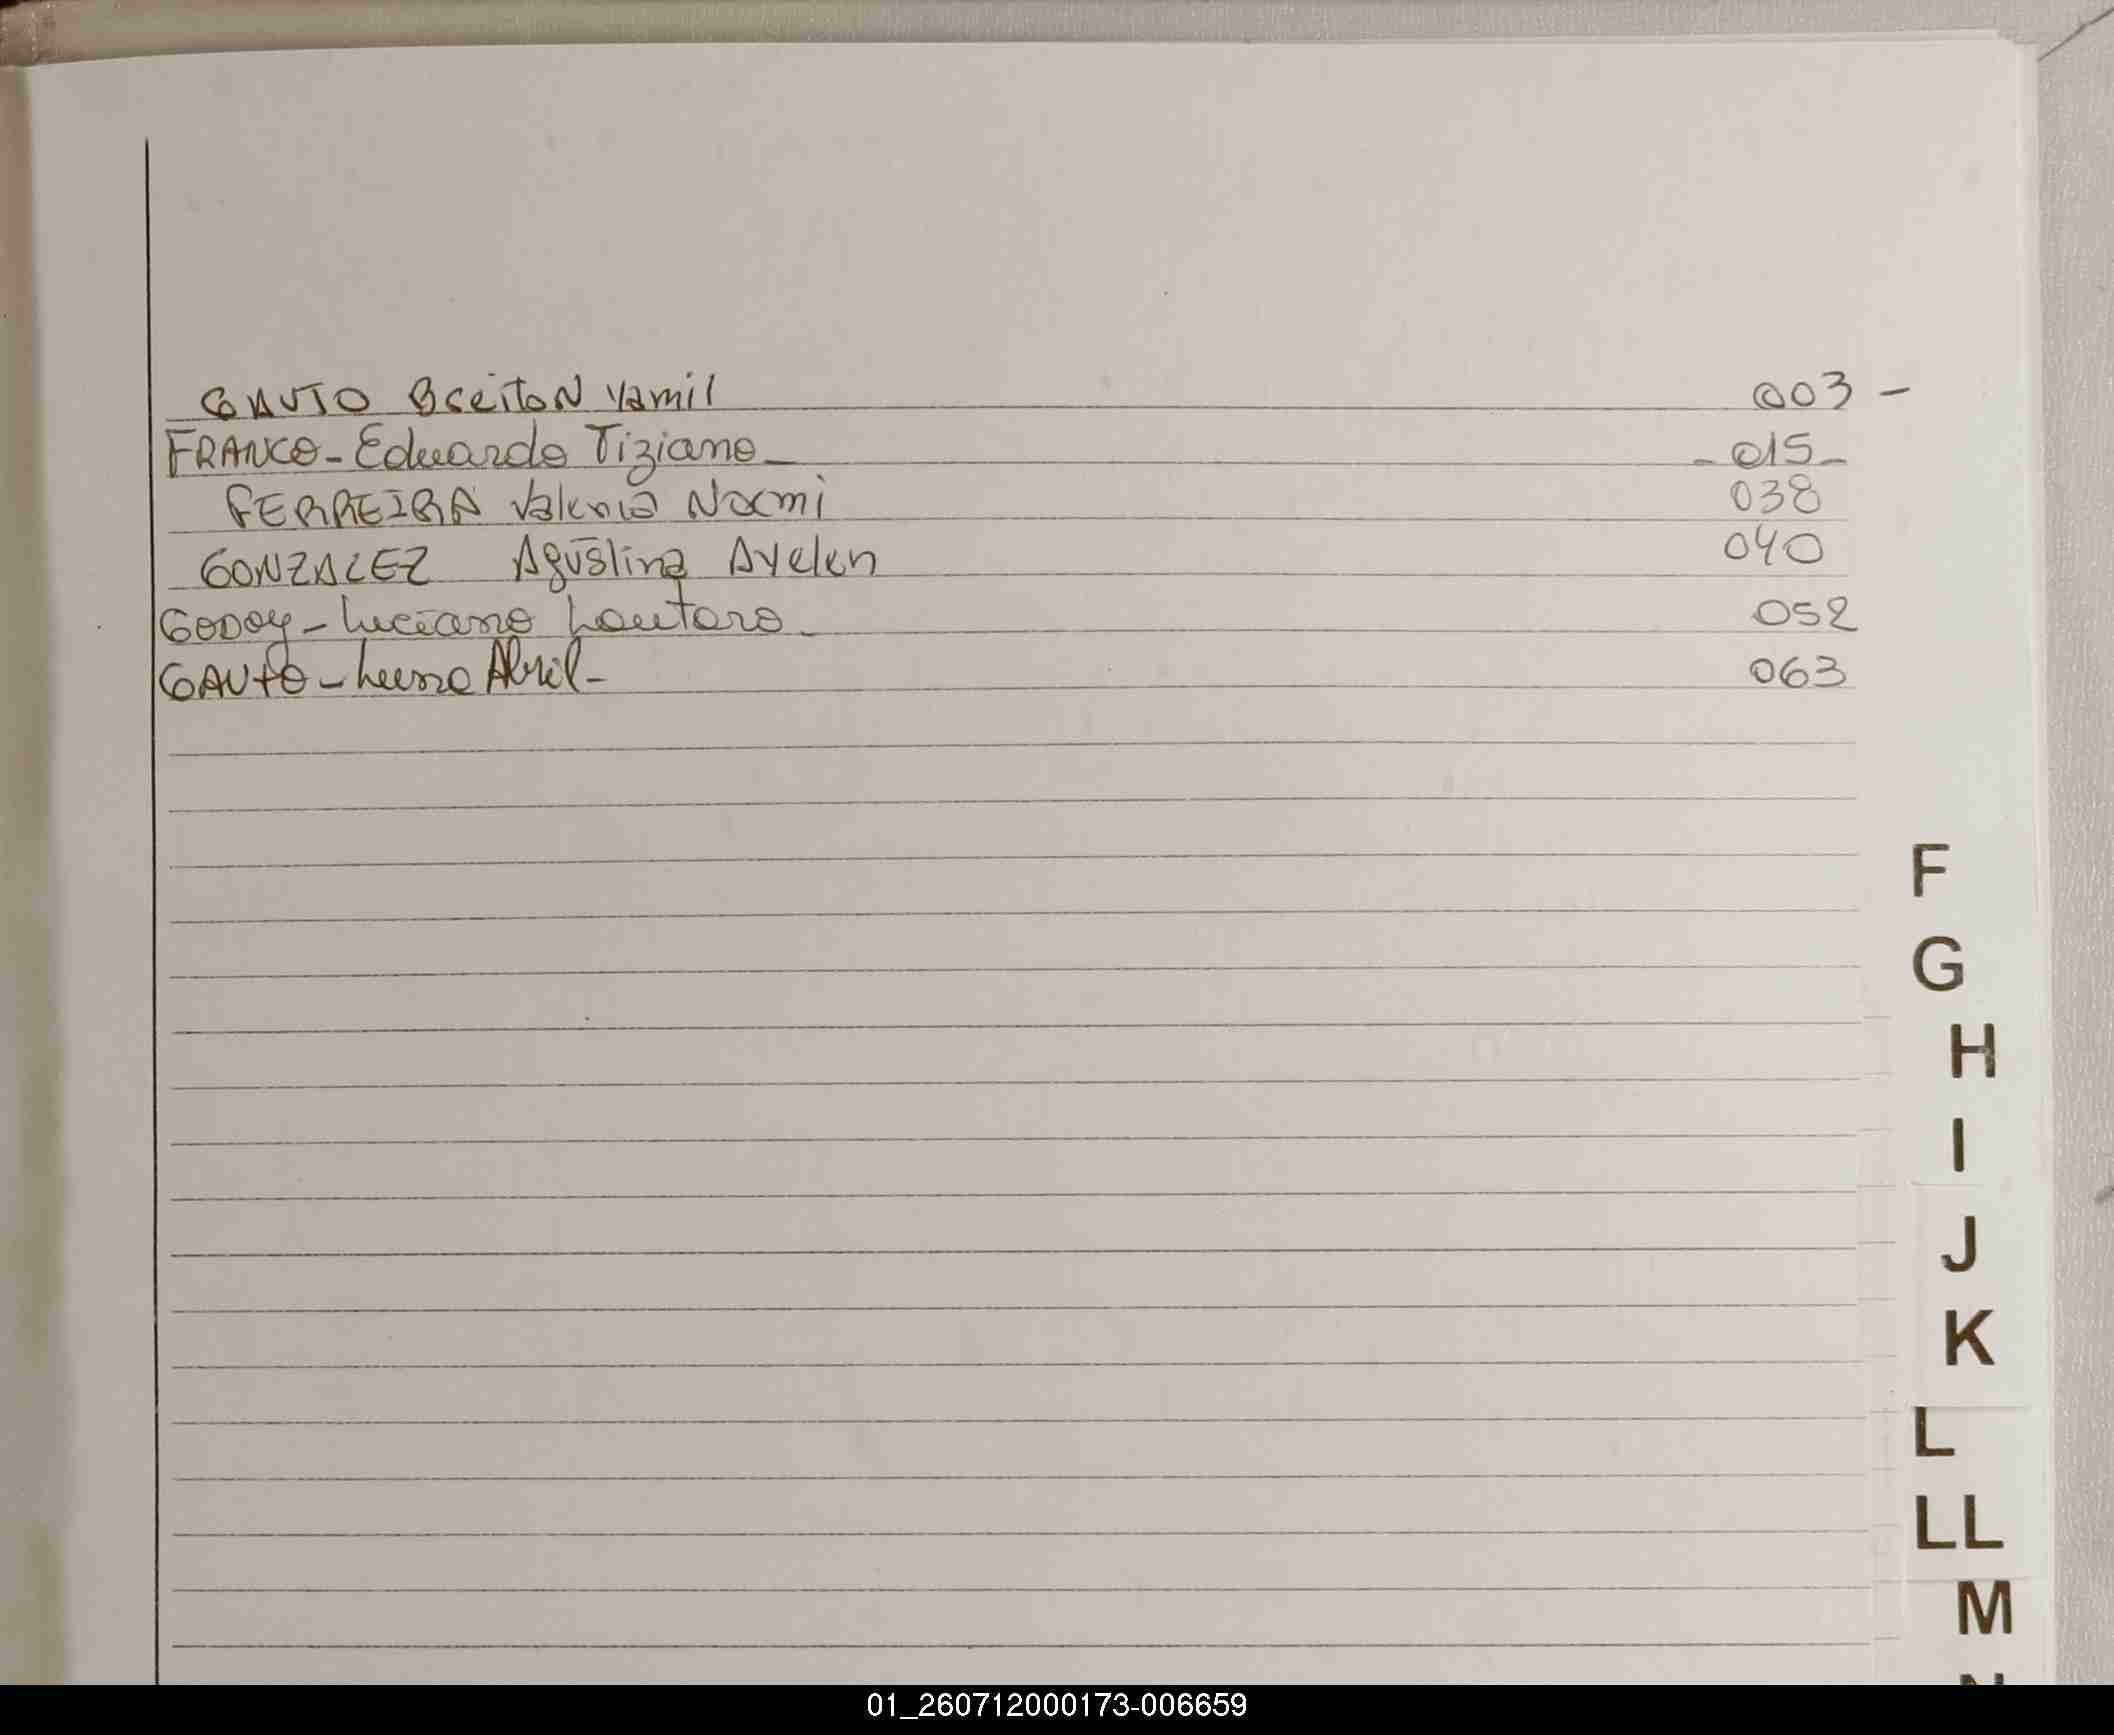 GAUTO Breiton Yamil 003 -
FRANCO - Eduardo Tiziano - - 015 -
FERREIRA Valeria Noemi 038
GONZALEZ Agustina Ayelen 040
GODOY - Luciano Lautaro - 052
GAUTO - Luna Abril - 063
F
G
H
I
J
K
L
LL
M
01_260712000173-006659